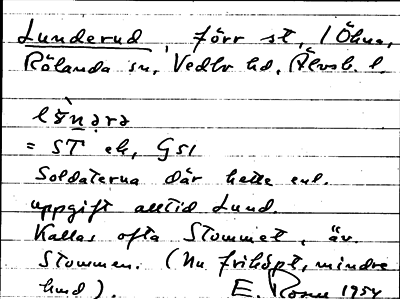 Lunderud, förr st, i Öhna,
Rölanda sn, Vedbo hd, Älvsb. l.
= ST ek, GS1
Soldaterna där hette enl.
uppgift alltid Lund.
Kallas ofta Stommet, äv.
Stommen. (Nu friköpt, mindre
hmd). E. Rosn 1954